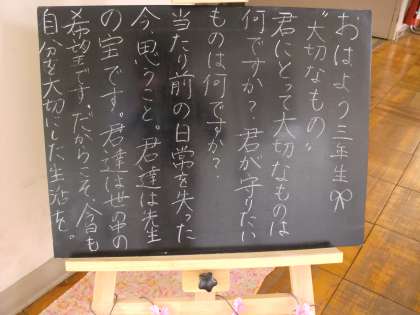 おはよう三年生
"大切なもの"
君にとって大切なものは
何ですか？君が守りたい
ものは何ですか？
当たり前の日常を失った
今、思うこと。君達は先生
の宝です。君達は世の中の
希望です。だからこそ、今日も
自分を大切にした生活を。